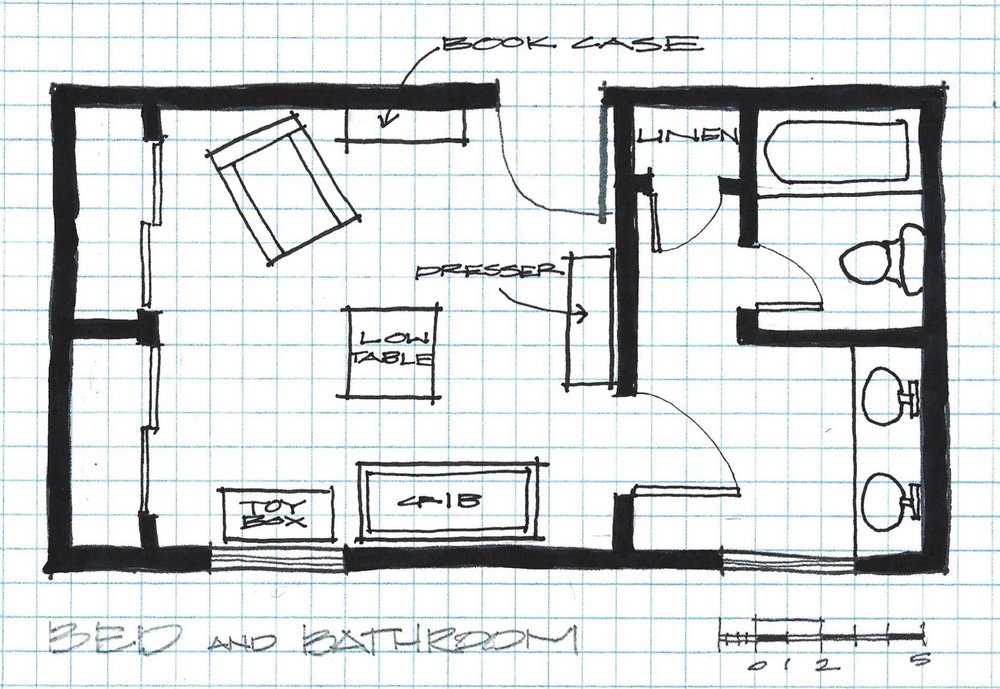 BOOK CASE
LINEN
DRESSER
LOW
TABLE
TOY
BOX
CRIB
BED AND BATHROOM
0 1 2 5